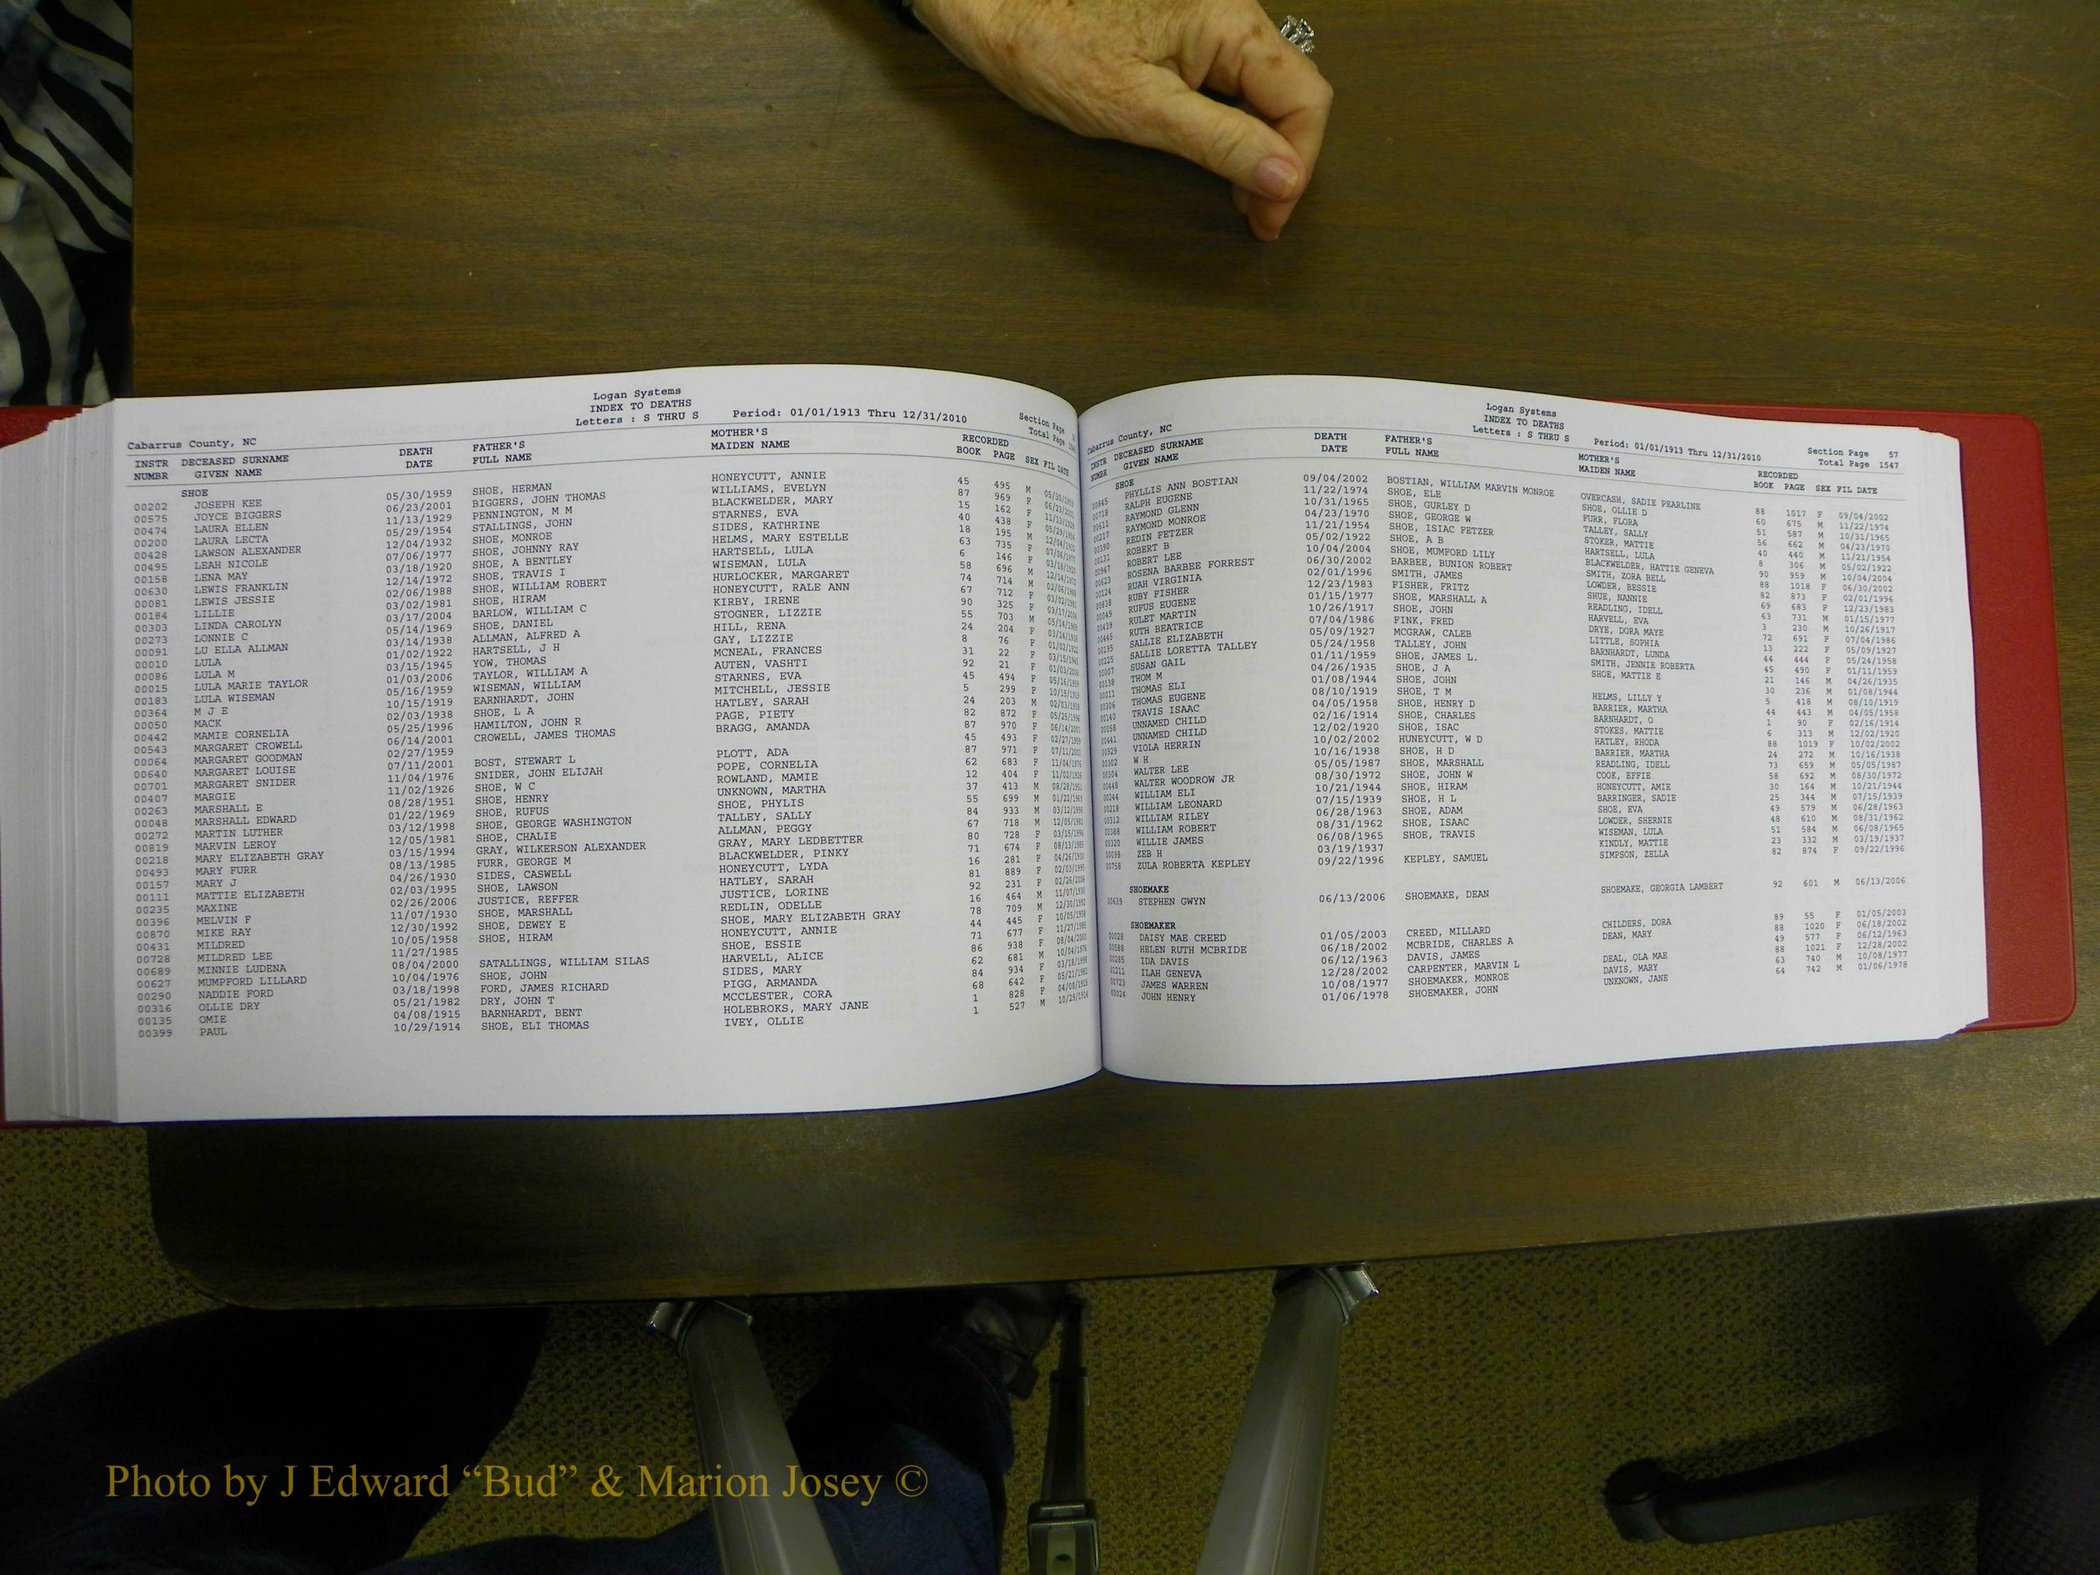 Logan Systems
INDEX TO DEATHS
Letters : S THRU S Period: 01/01/1913 Thru 12/31/2010
Section Page
Total Page
Cabarrus County, NC
INSTR DECEASED SURNAME DEATH FATHER'S MOTHER'S RECORDED
NUMBR GIVEN NAME DATE FULL NAME MAIDEN NAME BOOK PAGE SEX FIL DATE
SHOE
00202 JOSEPH KEE 05/30/1959 SHOE, HERMAN HONEYCUTT, ANNIE 45 495 M 05/30/1959
00575 JOYCE BIGGERS 06/23/2001 BIGGERS, JOHN THOMAS WILLIAMS, EVELYN 87 969 F 06/23/2001
00474 LAURA ELLEN 11/13/1929 PENNINGTON, M M BLACKWELDER, MARY 15 162 F 11/13/1929
00200 LAURA LECTA 05/29/1954 STALLINGS, JOHN STARNES, EVA 40 438 F 05/29/1954
00428 LAWSON ALEXANDER 12/04/1932 SHOE, MONROE SIDES, KATHRINE 18 195 M 12/04/1932
00495 LEAH NICOLE 07/06/1977 SHOE, JOHNNY RAY HELMS, MARY ESTELLE 63 735 F 07/06/1977
00158 LENA MAY 03/18/1920 SHOE, A BENTLEY HARTSELL, LULA 6 146 F 03/18/1920
00630 LEWIS FRANKLIN 12/14/1972 SHOE, TRAVIS I WISEMAN, LULA 58 696 M 12/14/1972
00081 LEWIS JESSIE 02/06/1988 SHOE, WILLIAM ROBERT HURLOCKER, MARGARET 74 714 M 02/06/1988
00184 LILLIE 03/02/1981 SHOE, HIRAM HONEYCUTT, RALE ANN 67 712 F 03/02/1981
00303 LINDA CAROLYN 03/17/2004 BARLOW, WILLIAM C KIRBY, IRENE 90 325 F 03/17/2004
00273 LONNIE C 05/14/1969 SHOE, DANIEL STOGNER, LIZZIE 55 703 M 05/14/1969
00091 LU ELLA ALLMAN 03/14/1938 ALLMAN, ALFRED A HILL, RENA 24 204 F 03/14/1938
00010 LULA 01/02/1922 HARTSELL, J H GAY, LIZZIE 8 76 F 01/02/1922
00086 LULA M 03/15/1945 YOW, THOMAS MCNEAL, FRANCES 31 22 F 03/15/1945
00015 LULA MARIE TAYLOR 01/03/2006 TAYLOR, WILLIAM A AUTEN, VASHTI 92 21 F 01/03/2006
00183 LULA WISEMAN 05/16/1959 WISEMAN, WILLIAM STARNES, EVA 45 494 F 05/16/1959
00364 M J E 10/15/1919 EARNHARDT, JOHN MITCHELL, JESSIE 5 299 F 10/15/1919
00050 MACK 02/03/1938 SHOE, L A HATLEY, SARAH 24 203 M 02/03/1938
00442 MAMIE CORNELIA 05/25/1996 HAMILTON, JOHN R PAGE, PIETY 82 872 F 05/25/1996
00543 MARGARET CROWELL 06/14/2001 CROWELL, JAMES THOMAS BRAGG, AMANDA 87 970 F 06/14/2001
00064 MARGARET GOODMAN 02/27/1959 45 493 F 02/27/1959
00640 MARGARET LOUISE 07/11/2001 BOST, STEWART L PLOTT, ADA 87 971 F 07/11/2001
00701 MARGARET SNIDER 11/04/1976 SNIDER, JOHN ELIJAH POPE, CORNELIA 62 683 F 11/04/1976
00407 MARGIE 11/02/1926 SHOE, W C ROWLAND, MAMIE 12 404 F 11/02/1926
00263 MARSHALL E 08/28/1951 SHOE, HENRY UNKNOWN, MARTHA 37 413 M 08/28/1951
00048 MARSHALL EDWARD 01/22/1969 SHOE, RUFUS SHOE, PHYLIS 55 699 M 01/22/1969
00272 MARTIN LUTHER 03/12/1998 SHOE, GEORGE WASHINGTON TALLEY, SALLY 84 933 M 03/12/1998
00819 MARVIN LEROY 12/05/1981 SHOE, CHALIE ALLMAN, PEGGY 67 718 M 12/05/1981
00218 MARY ELIZABETH GRAY 03/15/1994 GRAY, WILKERSON ALEXANDER GRAY, MARY LEDBETTER 80 728 F 03/15/1994
00493 MARY FURR 08/13/1985 FURR, GEORGE M BLACKWELDER, PINKY 71 674 F 08/13/1985
00157 MARY J 04/26/1930 SIDES, CASWELL HONEYCUTT, LYDA 16 281 F 04/26/1930
00111 MATTIE ELIZABETH 02/03/1995 SHOE, LAWSON HATLEY, SARAH 81 889 F 02/03/1995
00235 MAXINE 02/26/2006 JUSTICE, REFFER JUSTICE, LORINE 92 231 F 02/26/2006
00396 MELVIN F 11/07/1930 SHOE, MARSHALL REDLIN, ODELLE 16 464 M 11/07/1930
00870 MIKE RAY 12/30/1992 SHOE, DEWEY E SHOE, MARY ELIZABETH GRAY 78 709 M 12/30/1992
00431 MILDRED 10/05/1958 SHOE, HIRAM HONEYCUTT, ANNIE 44 445 F 10/05/1958
00728 MILDRED LEE 11/27/1985 SHOE, ESSIE 71 677 F 11/27/1985
00689 MINNIE LUDENA 08/04/2000 SATALLINGS, WILLIAM SILAS HARVELL, ALICE 86 938 F 08/04/2000
00627 MUMPFORD LILLARD 10/04/1976 SHOE, JOHN SIDES, MARY 62 681 M 10/04/1976
00290 NADDIE FORD 03/18/1998 FORD, JAMES RICHARD PIGG, ARMANDA 84 934 F 03/18/1998
00316 OLLIE DRY 05/21/1982 DRY, JOHN T MCCLESTER, CORA 68 642 F 05/21/1982
00135 OMIE 04/08/1915 BARNHARDT, BENT HOLEBROKS, MARY JANE 1 828 F 04/08/1915
00399 PAUL 10/29/1914 SHOE, ELI THOMAS IVEY, OLLIE 1 527 M 10/29/1914
Logan Systems
INDEX TO DEATHS
Letters : S THRU S Period: 01/01/1913 Thru 12/31/2010
Section Page 57
Total Page 1547
Cabarrus County, NC
INSTR DECEASED SURNAME DEATH FATHER'S MOTHER'S RECORDED
NUMBR GIVEN NAME DATE FULL NAME MAIDEN NAME BOOK PAGE SEX FIL DATE
SHOE
00845 PHYLLIS ANN BOSTIAN 09/04/2002 BOSTIAN, WILLIAM MARVIN MONROE OVERCASH, SADIE PEARLINE 88 1017 F 09/04/2002
00718 RALPH EUGENE 11/22/1974 SHOE, ELE SHOE, OLLIE D 60 675 M 11/22/1974
00611 RAYMOND GLENN 10/31/1965 SHOE, GURLEY D FURR, FLORA 51 587 M 10/31/1965
00217 RAYMOND MONROE 04/23/1970 SHOE, GEORGE W TALLEY, SALLY 56 662 M 04/23/1970
00390 REDIN FETZER 11/21/1954 SHOE, ISIAC FETZER STOKER, MATTIE 40 440 M 11/21/1954
00131 ROBERT B 05/02/1922 SHOE, A B HARTSELL, LULA 8 306 M 05/02/1922
00947 ROBERT LEE 10/04/2004 SHOE, MUMFORD LILY BLACKWELDER, HATTIE GENEVA 90 959 M 10/04/2004
00623 ROSENA BARBEE FORREST 06/30/2002 BARBEE, BUNION ROBERT SMITH, ZORA BELL 88 1018 F 06/30/2002
00124 RUAH VIRGINIA 02/01/1996 SMITH, JAMES LOWDER, BESSIE 82 873 F 02/01/1996
00838 RUBY FISHER 12/23/1983 FISHER, FRITZ SHUE, NANNIE 69 683 F 12/23/1983
00049 RUFUS EUGENE 01/15/1977 SHOE, MARSHALL A READLING, IDELL 63 731 M 01/15/1977
00439 RULET MARTIN 10/26/1917 SHOE, JOHN HARVELL, EVA 3 230 M 10/26/1917
00445 RUTH BEATRICE 07/04/1986 FINK, FRED DRYE, DORA MAYE 72 691 F 07/04/1986
00195 SALLIE ELIZABETH 05/09/1927 MCGRAW, CALEB LITTLE, SOPHIA 13 222 F 05/09/1927
00225 SALLIE LORETTA TALLEY 05/24/1958 TALLEY, JOHN BARNHARDT, LUNDA 44 444 F 05/24/1958
00007 SUSAN GAIL 01/11/1959 SHOE, JAMES L. SMITH, JENNIE ROBERTA 45 490 F 01/11/1959
00138 THOM M 04/26/1935 SHOE, J A SHOE, MATTIE E 21 146 M 04/26/1935
00011 THOMAS ELI 01/08/1944 SHOE, JOHN 30 236 M 01/08/1944
00306 THOMAS EUGENE 08/10/1919 SHOE, T M HELMS, LILLY Y 5 418 M 08/10/1919
00140 TRAVIS ISAAC 04/05/1958 SHOE, HENRY D BARRIER, MARTHA 44 443 M 04/05/1958
00058 UNNAMED CHILD 02/16/1914 SHOE, CHARLES BARNHARDT, O 1 90 F 02/16/1914
00441 UNNAMED CHILD 12/02/1920 SHOE, ISAC STOKES, MATTIE 6 313 M 12/02/1920
00929 VIOLA HERRIN 10/02/2002 HUNEYCUTT, W D HATLEY, RHODA 88 1019 F 10/02/2002
00302 W H 10/16/1938 SHOE, H D BARRIER, MARTHA 24 272 M 10/16/1938
00304 WALTER LEE 05/05/1987 SHOE, MARSHALL READLING, IDELL 73 659 M 05/05/1987
00448 WALTER WOODROW JR 08/30/1972 SHOE, JOHN W COOK, EFFIE 58 692 M 08/30/1972
00244 WILLIAM ELI 10/21/1944 SHOE, HIRAM HONEYCUTT, AMIE 30 164 M 10/21/1944
00218 WILLIAM LEONARD 07/15/1939 SHOE, H L BARRINGER, SADIE 25 344 M 07/15/1939
00312 WILLIAM RILEY 06/28/1963 SHOE, ADAM SHOE, EVA 49 579 M 06/28/1963
00388 WILLIAM ROBERT 08/31/1962 SHOE, ISAAC LOWDER, SHERNIE 48 610 M 08/31/1962
00320 WILLIE JAMES 06/08/1965 SHOE, TRAVIS WISEMAN, LULA 51 584 M 06/08/1965
00098 ZEB H 03/19/1937 KINDLY, MATTIE 23 332 M 03/19/1937
00758 ZULA ROBERTA KEPLEY 09/22/1996 KEPLEY, SAMUEL SIMPSON, ZELLA 82 874 F 09/22/1996
SHOEMAKE
00639 STEPHEN GWYN 06/13/2006 SHOEMAKE, DEAN SHOEMAKE, GEORGIA LAMBERT 92 601 M 06/13/2006
SHOEMAKER
00028 DAISY MAE CREED 01/05/2003 CREED, MILLARD CHILDERS, DORA 89 55 F 01/05/2003
00588 HELEN RUTH MCBRIDE 06/18/2002 MCBRIDE, CHARLES A DEAN, MARY 88 1020 F 06/18/2002
00285 IDA DAVIS 06/12/1963 DAVIS, JAMES 49 577 F 06/12/1963
01211 ILAH GENEVA 12/28/2002 CARPENTER, MARVIN L DEAL, OLA MAE 88 1021 F 12/28/2002
00723 JAMES WARREN 10/08/1977 SHOEMAKER, MONROE DAVIS, MARY 63 740 M 10/08/1977
00024 JOHN HENRY 01/06/1978 SHOEMAKER, JOHN UNKNOWN, JANE 64 742 M 01/06/1978
Photo by J Edward “Bud” & Marion Josey ©